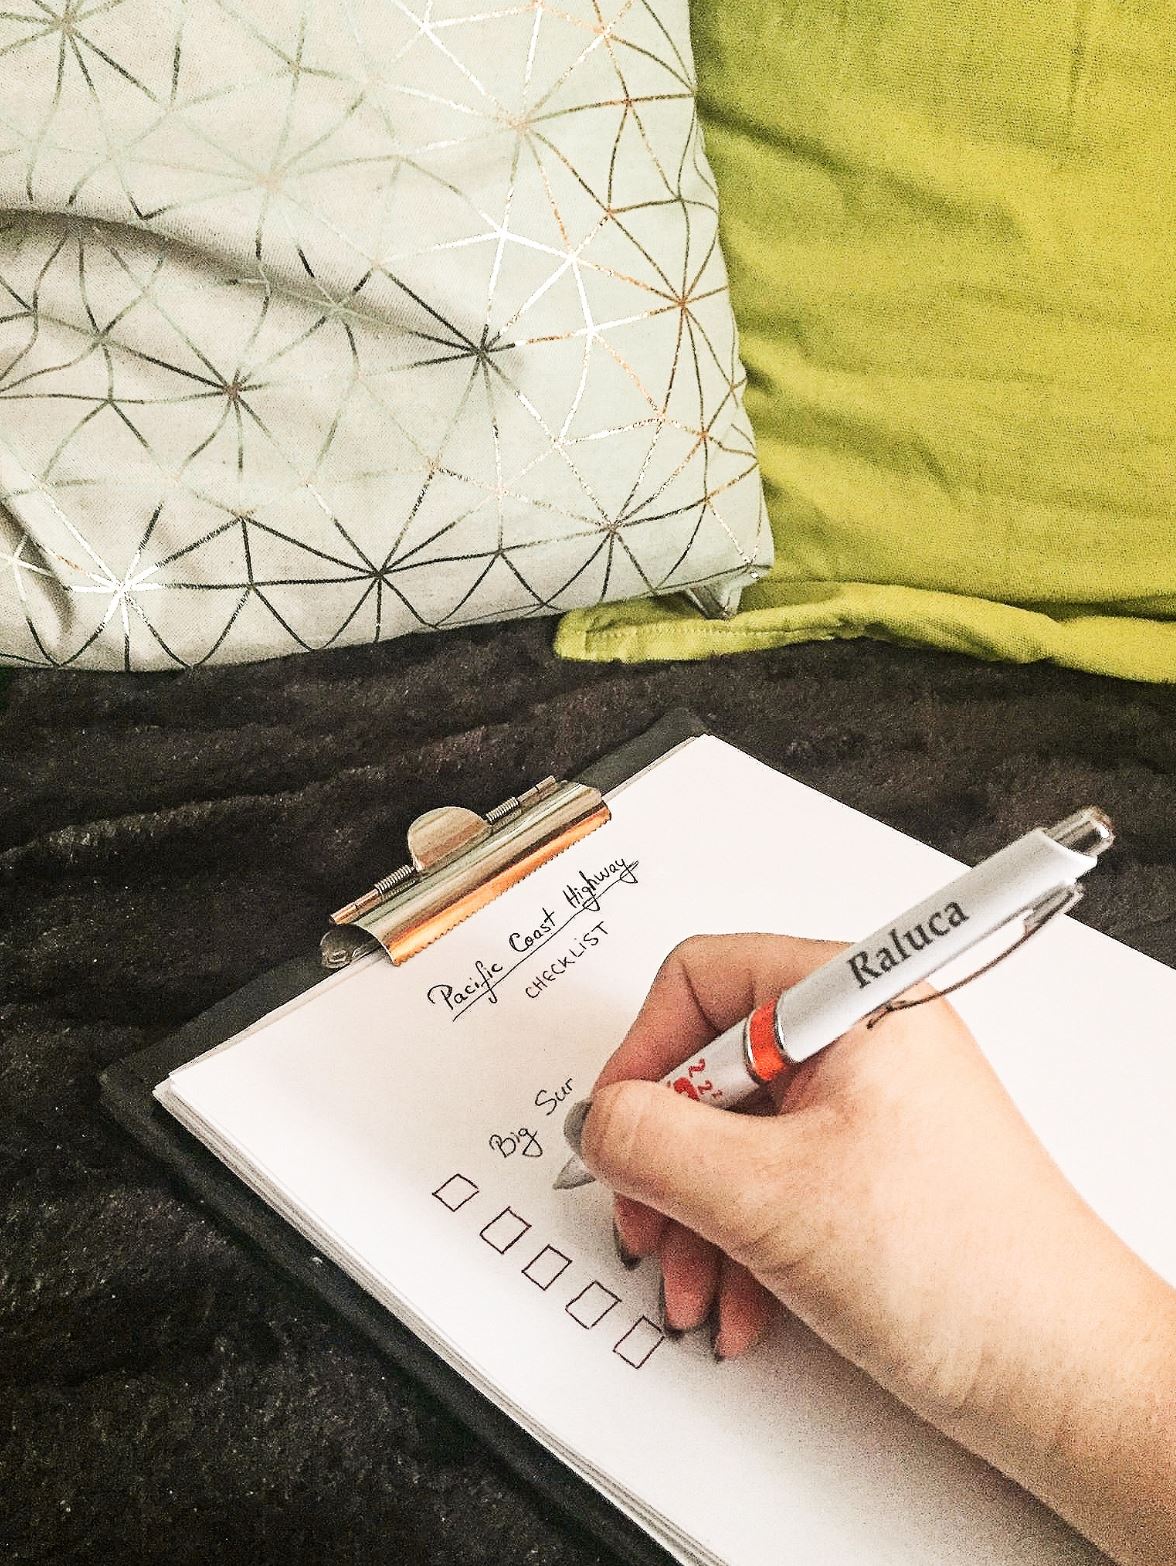 Pacific Coast Highway
CHECKLIST
Big Sur
Raluca